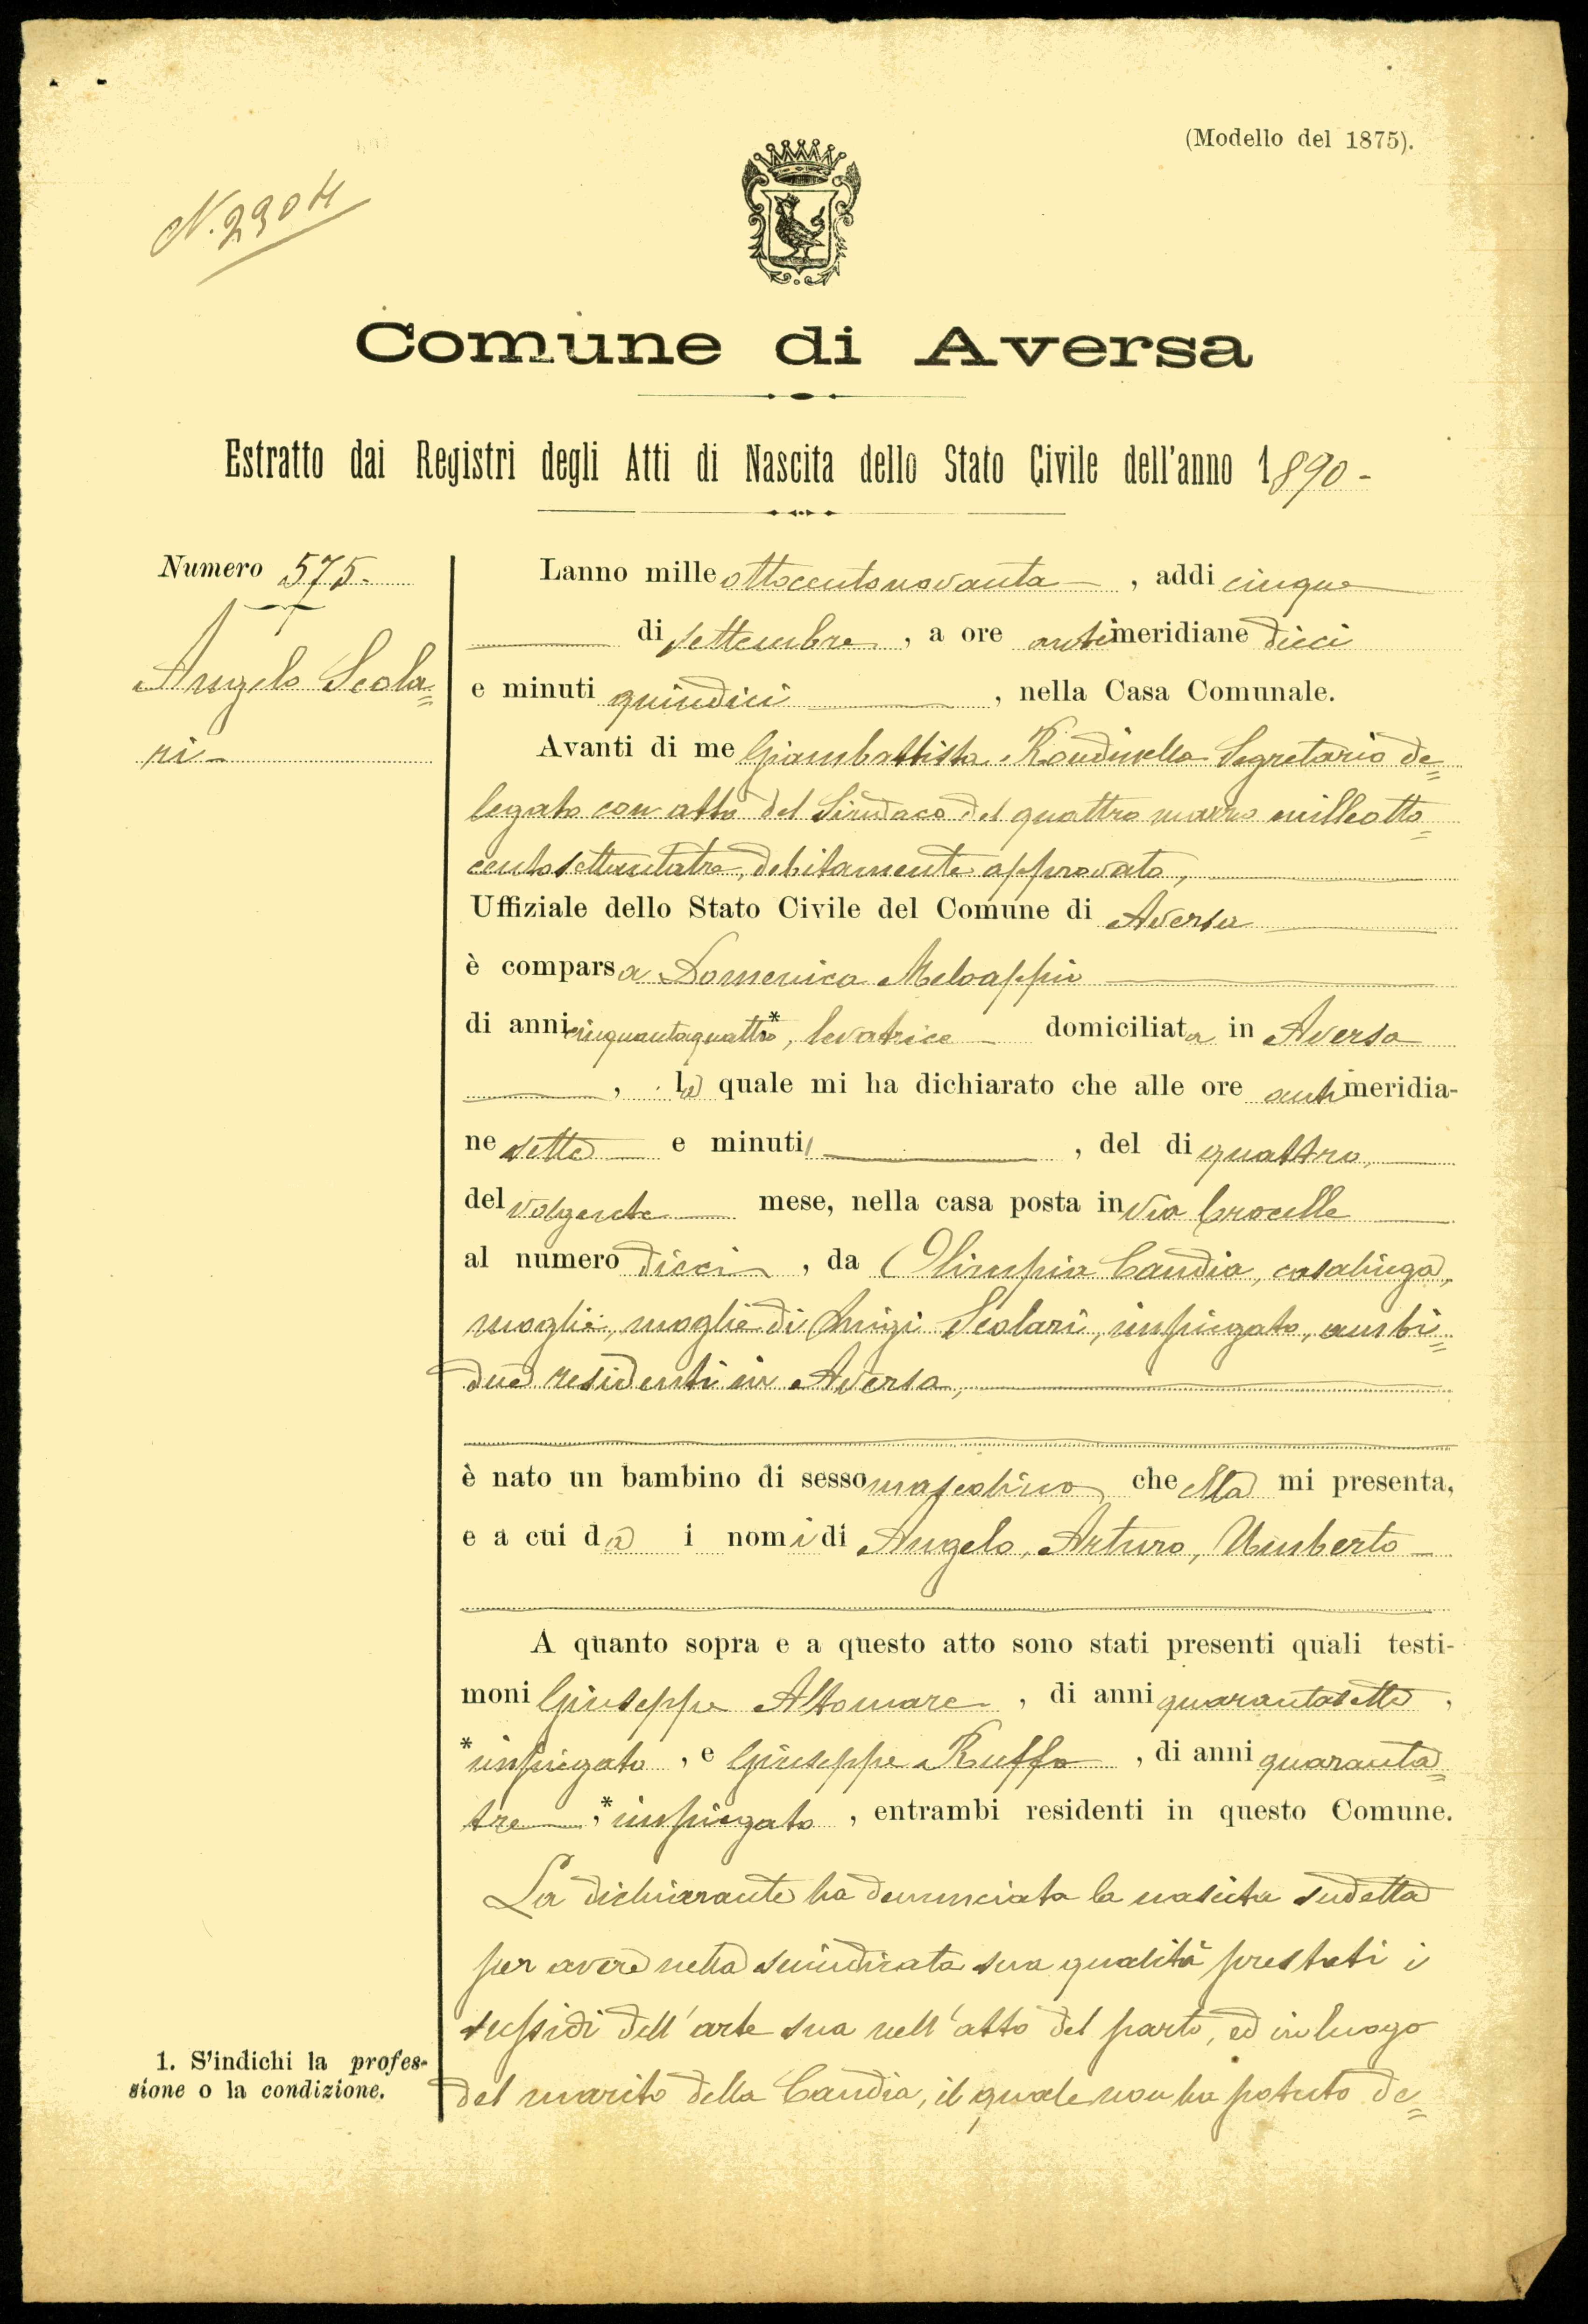 (Modello del 1875).
N. 2904
Comune di Aversa
Estratto dai Registri degli Atti di Nascita dello Stato Civile dell'anno 1890-
Numero 575.
Angelo Scola=
ri-
Lanno mille ottocentonovanta, addi cinque
di settembre, a ore antimeridiane dieci
e minuti quindici, nella Casa Comunale.
Avanti di me Giambattista Rondinella Segretario de=
legato con atto del Sindaco del quattro marzo milleotto=
centosettantatre, debitamente approvato,
Uffiziale dello Stato Civile del Comune di Aversa
è comparsa Domenica Meloappio
di anni cinquantaquattro*, levatrice domiciliata in Aversa
, la quale mi ha dichiarato che alle ore antimeridia-
ne sette e minuti, del di quattro,
del volgente mese, nella casa posta in via Crocelle
al numero dieci, da Olimpia Candia, casalinga,
moglie, moglie di Luigi Scolari, impiegato, ambi=
due residenti in Aversa,
è nato un bambino di sesso mascolino che ella mi presenta,
e a cui dà i nomi di Angelo, Arturo, Umberto
A quanto sopra e a questo atto sono stati presenti quali testi-
moni Giuseppe Altomare, di anni quarantasette,
*impiegato, e Giuseppe Ruffo, di anni quaranta=
tre,* impiegato, entrambi residenti in questo Comune.
La dichiarante ha denunciata la nascita sudetta
per avere nella suindicata sua qualità prestati i
sussidi dell'arte sua nell'atto del parto, ed in luogo
del marito della Candia, il quale non ha potuto de=
1. S'indichi la profes-
sione o la condizione.